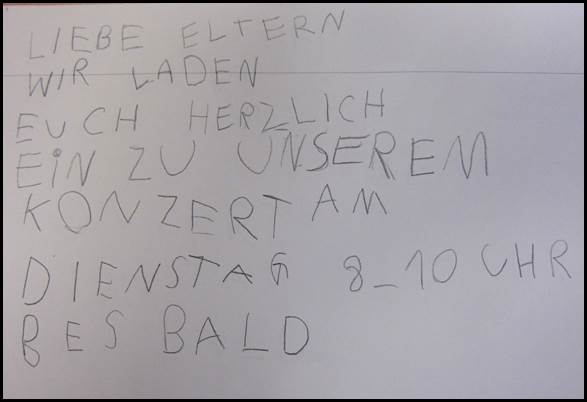 LIEBE ELTERN
WIR LADEN
EUCH HERZLICH
EiN ZU UNSEREM
KONZERT AM
DIENSTAG 8_10 UHR
BES BALD